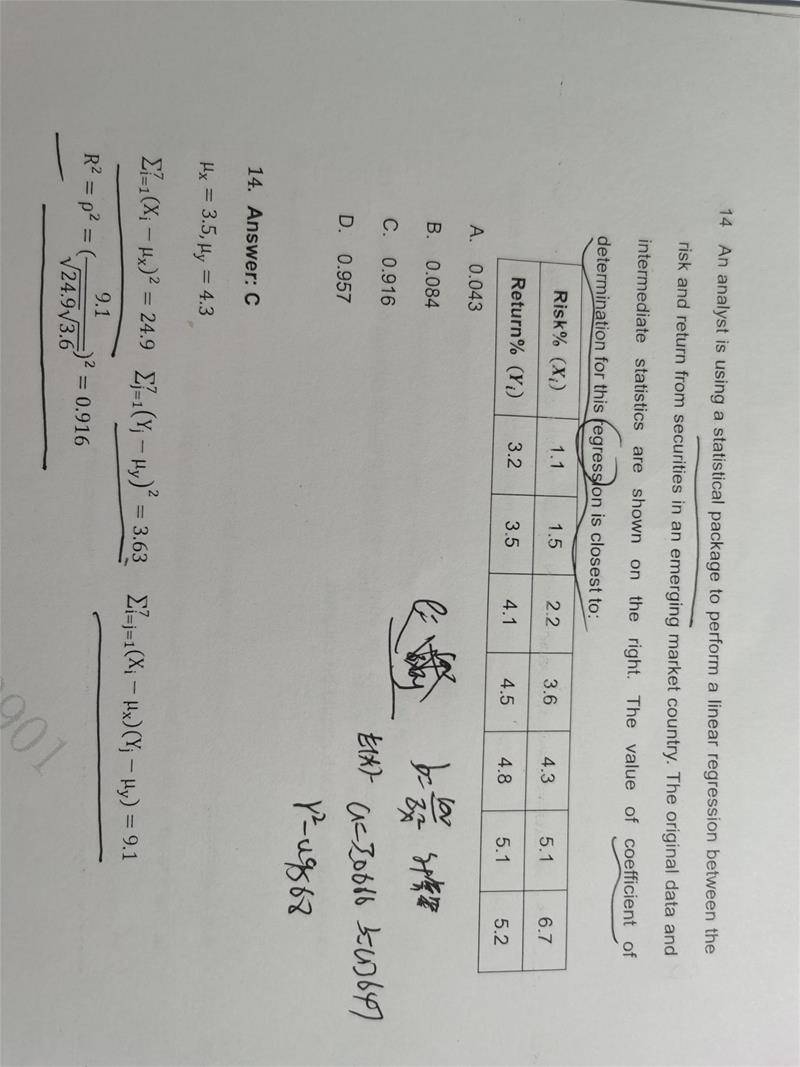 14 An analyst is using a statistical package to perform a linear regression between the
risk and return from securities in an emerging market country. The original data and
intermediate statistics are shown on the right. The value of coefficient of
determination for this regression is closest to:
Risk% (Xᵢ) 1.1 1.5 2.2 3.6 4.3 5.1 6.7
Return% (Yᵢ) 3.2 3.5 4.1 4.5 4.8 5.1 5.2
A. 0.043
B. 0.084
C. 0.916
D. 0.957
14. Answer: C
μₓ = 3.5, μᵧ = 4.3
∑⁷ᵢ₌₁(Xᵢ − μₓ)² = 24.9 ∑⁷ⱼ₌₁(Yⱼ − μᵧ)² = 3.63 ∑⁷ᵢ₌ⱼ₌₁(Xᵢ − μₓ)(Yⱼ − μᵧ) = 9.1
R² = ρ² = (9.1 / √24.9√3.6)² = 0.916
901